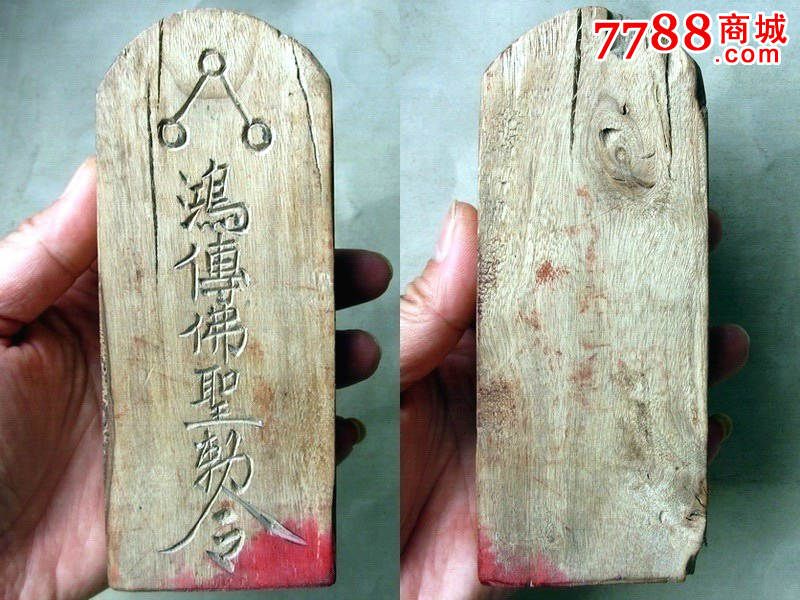 鴻傳佛聖勅令
7788商城
.com